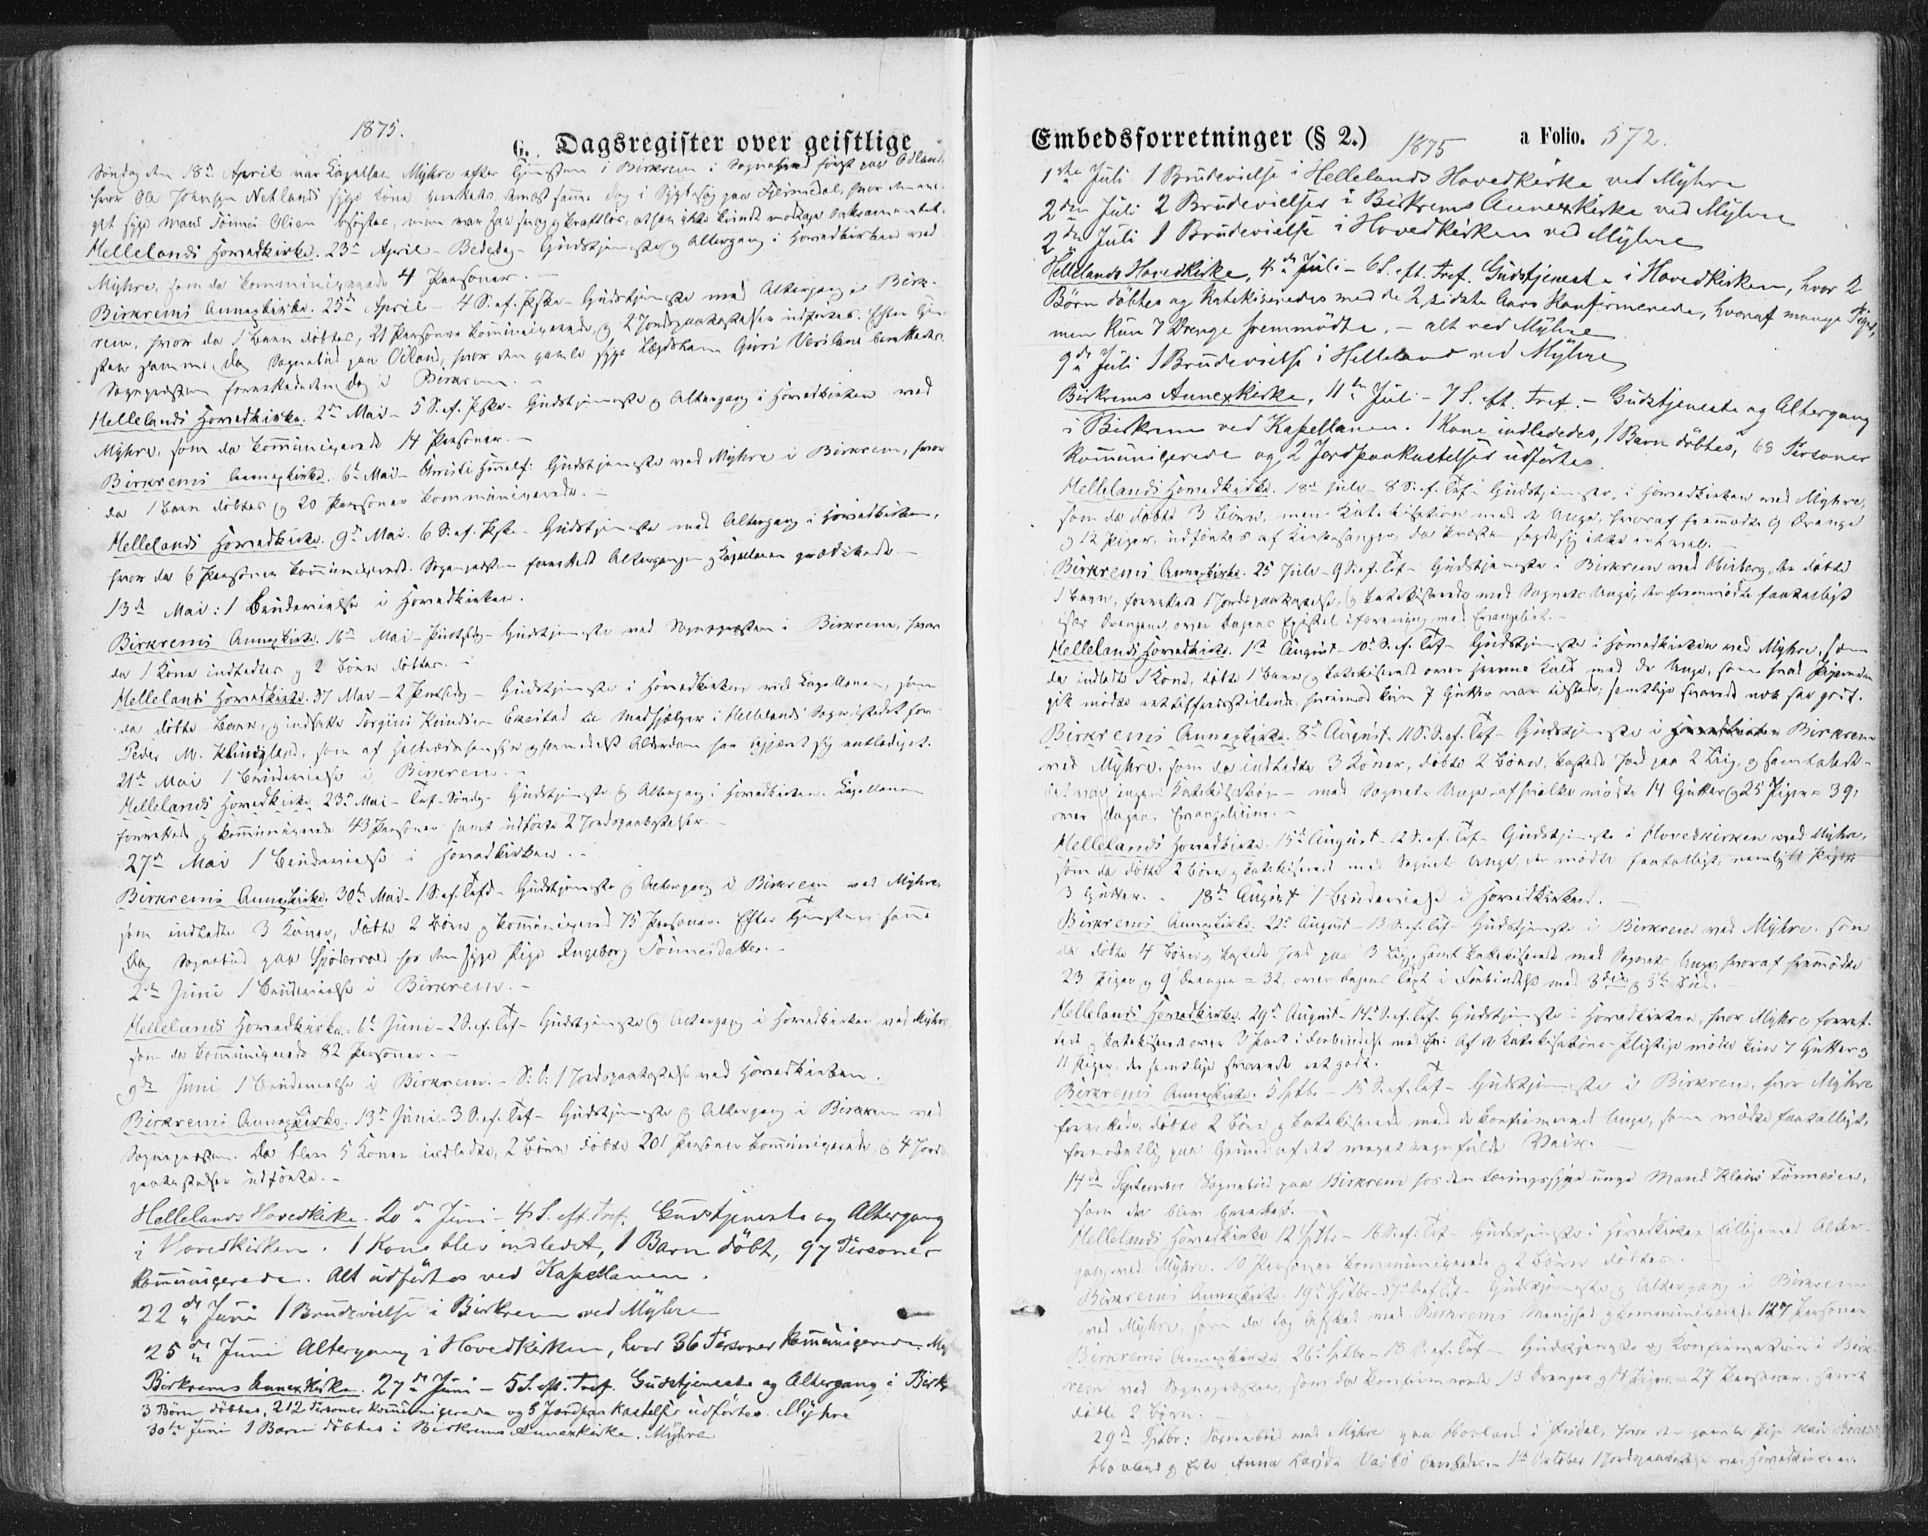 1875.
G. Dagsregister over geistlige
Søndag den 18de April var Capellan Myhre efter Tjenesten i Birkrem i Sognebud først paa Ødland,
hvor Ole Johnsen Netlands syge Kone
get syge Mand Tönnes Olsen
Hellelands Hovedkirke. 23de April - Bededag - Gudstjeneste og Altergang i Hovedkirken ved
Myhre, som da kommunicerede 4 Personer. -
Birkrems Annexkirke. 25de April - 4 S. ef. Pske - Gudstjeneste med Altergang i Birk-
rem, hvor da 1 Barn döbtes, 21 Personer kommunicerede, og 2 Jordpaakastelser udførtes. Efter Tjene-
sten samme Dag Sognebud paa Ödland, hvor den gamle syge
Sognepresten forrettede den Dag i Birkrem. -
Hellelands Hovedkirke. 2den Mai - 5 S. ef. Pske. Gudstjeneste og Altergang i Hovedkirken ved
Myhre, som da kommunicerede 14 Personer. -
Birkrems Annexkirke. 6te Mai - Christi Himmelf: Gudstjeneste ved Myhre i Birkrem, hvor
da 1 Barn döbtes og 20 Personer kommunicerede. -
Hellelands Hovedkirke. 9de Mai. 6 S. ef. Pske - Gudstjeneste med Altergang i Hovedkirken,
hvor da 6 Personer kommunicerede. Sognepresten forrettede Altergangen og Capellanen prædikede. -
13de Mai: 1 Brudevielse i Hovedkirken.
Birkrems Annexkirke. 16de Mai - Pintsedag - Gudstjeneste ved Sognepresten i Birkrem, hvor
da 1 Kone indledtes og 2 Börn döbtes. -
Hellelands Hovedkirke. 17 Mai - 2 Pintsedag - Gudstjeneste i Hovedkirken ved Capellanen, som
da döbte Barn, og indsatte Torgius Eikestad til Medhjælper i Hellelands Sogn istedet for
Peder M. Klungland, som af Helbredshensyn og fremrykket Alderdom har begjært sig entlediget.
21de Mai 1 Brudevielse i Birkrem. -
Hellelands Hovedkirke 23de Mai - Tref. Söndag - Gudstjeneste og Altergang i Hovedkirken. Capellanen
forrettede og kommunicerede 43 Personer samt udførte 2 Jordpaakastelser. -
27de Mai 1 Brudevielse i Hovedkirken. -
Birkrems Annexkirke. 30te Mai - 1 S. ef. Tref - Gudstjeneste og Altergang i Birkrem ved Myhre,
som indledte 3 Koner, döbte 2 Börn og kommunicerede 75 Personer. Efter Tjenesten samme
Dag Sognebud paa hos den syge Pige Ingeborg Tönnesdatter. -
2den Juni 1 Brudevielse i Birkrem. -
Hellelands Hovedkirke. 6te Juni - 2 S. ef. Tref - Gudstjeneste og Altergang i Hovedkirken ved Myhre
som da kommunicerede 82 Personer. -
9de Juni 1 Brudevielse i Birkrem. - S. D: 1 Jordpaakastelse ved Hovedkirken.
Birkrems Annexkirke. 13de Juni - 3 S. ef. Tref - Gudstjeneste og Altergang i Birkrem ved
Sognepresten. Da blev 5 Koner indledte, 2 Börn döbte 201 Personer kommunicerede, og 4 Jord-
paakastelser udførte. -
Hellelands Hovedkirke. 20de Juni - 4 S. eft. Tref. Gudstjeneste og Altergang
i Hovedkirken. 1 Kone blev indledet, 1 Barn döbt, 97 Personer
kommunicerede. Alt udførtes ved Kapellanen.
22de Juni 1 Brudevielse i Birkrem ved Myhre
25de Juni Altergang i Hovedkirken, hvor 36 Personer kommunicerede. Myhre
Birkrems Annexkirke. 27de Juni - 5 S. eft. Tref. Gudstjeneste og Altergang i Birkr.
3 Börn döbtes, 212 Personer kommunicerede og 5 Jordpaakastelser udførtes. Myhre
30te Juni 1 Barn döbtes i Birkrems Annexkirke. Myhre
Embedsforretninger (§ 2.) 1875 a Folio. 572.
1ste Juli 1 Brudevielse i Hellelands Hovedkirke ved Myhre
2den Juli 2 Brudevielser i Birkrems Annexkirke ved Myhre
2den Juli 1 Brudevielse i Hovedkirken ved Myhre
Hellelands Hovedkirke, 4de Juli - 6 S. eft. Tref. Gudstjeneste i Hovedkirken, hvor 2
Börn döbtes og Katekiseredes med de 2 sidste Aars Konfirmerede, hvoraf mange Piger,
men kun 7 Drenge fremmödte. - alt ved Myhre
9de Juli 1 Brudevielse i Helleland ved Myhre
Birkrems Annexkirke, 11te Juli - 7 S. eft. Tref. - Gudstjeneste og Altergang
i Birkrem ved Kapellanen. 1 Kone indledes, 1 Barn döbtes, 68 Personer
kommunicerede og 2 Jordpaakastelser udførtes.
Hellelands Hovedkirke. 18de Juli - 8 S. ef. Tref - Gudstjeneste, i Hovedkirken ved Myhre,
som da döbte 3 Börn, men Katekisation med de Unge, hvoraf fremmödte 9 Drenge
og 12 Piger, udførtes af Kirkesangeren, da Presten følte sig ikke ret vel. -
Birkrems Annexkirke. 25 Juli - 9 S. ef. Tref - Gudstjeneste i Birkrem ved döbte
1 Barn, forrettede 1 Jordpaakastelse, og katekiserede med Sognets Unge, der fremmödte faatalligt
især Drengene, over Dagens Epistel i forening med Evangeliet. -
Hellelands Hovedkirke. 1ste August - 10de S. ef. Tref - Gudstjeneste i Hovedkirken ved Myhre, som
da indledte 1 Kone, döbte 1 Barn og katekiserede med de Unge, som
hvorimod kun 7 Gutter var tilstede; samtlige svarede nok saa godt.
Birkrems Annexkirke. 8de August. 11 S. ef. Tref - Gudstjeneste i Birkrem
ved Myhre, som da indledte 3 Koner, döbte 2 Börn, kastede Jord paa 2 Liig, og samtalede -
det var ingen Katekisation - med Sognets Unge, af hvilke mödte 14 Gutter og 25 Piger = 39,
over Dagens Evangelium. -
Hellelands Hovedkirke. 15de August - 12 S. ef. Tref - Gudstjeneste i Hovedkirken ved Myhre,
som da döbte 2 Börn og katekiserede med Sognets Unge, der mödte faatalligt, nemlig Piger
3 Gutter. - 18de August 1 Brudevielse i Hovedkirken. -
Birkrems Annexkirke. 22de August - 13 S. ef. Tref - Gudstjeneste i Birkrem ved Myhre, som
da döbte 4 Börn, kastede Jord paa 3 Liig, samt katekiserede med Sognets Unge, hvoraf fremmödte
23 Piger og 9 Drenge = 32, over Dagens Text i Forbindelse med 3die og 5te Bud. -
Hellelands Hovedkirke. 29de August - 14 S. ef. Tref. Gudstjeneste i Hovedkirken, hvor Myhre forret-
tede og katekiserede over 3 Part i Forbindelse med Af de Katekisations-Pligtige mödte kun 7 Gutter og
11 Piger, der samtlige svarede ret godt.
Birkrems Annexkirke. 5 Sptbr - 15 S. ef. Tref - Gudstjeneste i Birkrem, hvor Myhre
forrettede, döbte 2 Börn og katekiserede med de konfirmerede Unge, som mödte faatalligt,
formodentlig paa Grund af det meget regnfulde Veir. -
14de September Sognebud paa Birkrem hos den tæringssyge unge Mand Klaus Tönnesen,
som da blev berettet. -
Hellelands Hovedkirke 12 Sptbr - 16 S. ef. Tref - Gudstjeneste i Hovedkirken tilligemed Alter-
gang ved Myhre. 10 Personer kommunicerede og 2 Börn döbtes.
Birkrems Annexkirke. 19de Sptbr - 17 S. ef. Tref - Gudstjeneste og Altergang i Birkrem
ved Myhre, som da tog Afsked med Birkrems Menighed og kommunicerede 127 Personer
Birkrems Annexkirke. 26de Sptbr - 18 S. ef. Tref - Gudstjeneste og Konfirmation i Birk-
rem ved Sognepresten, som da konfirmerede 13 Drenge og 14 Piger = 27 Personer, samt
döbte 2 Börn. -
29de Sptbr: Sognebud ved Myhre paa Hovland i hvor den gamle Pige
Hovland og Anna berettedes. - 1ste Oktober 1 Jordpaakastelse ved Hovedkirken